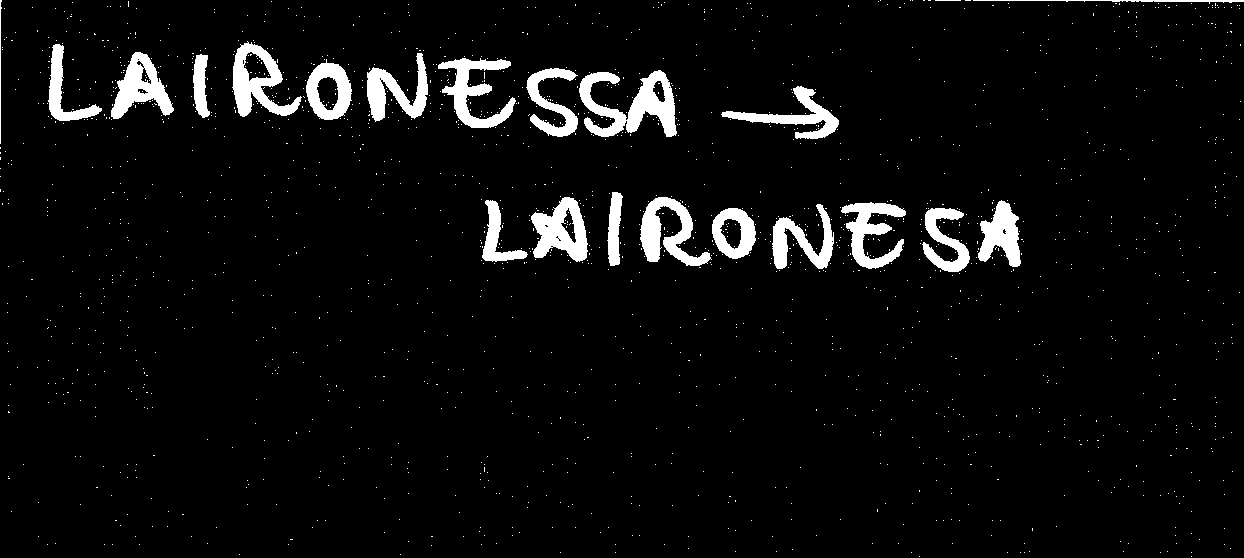 LAIRONESSA →
LAIRONESA